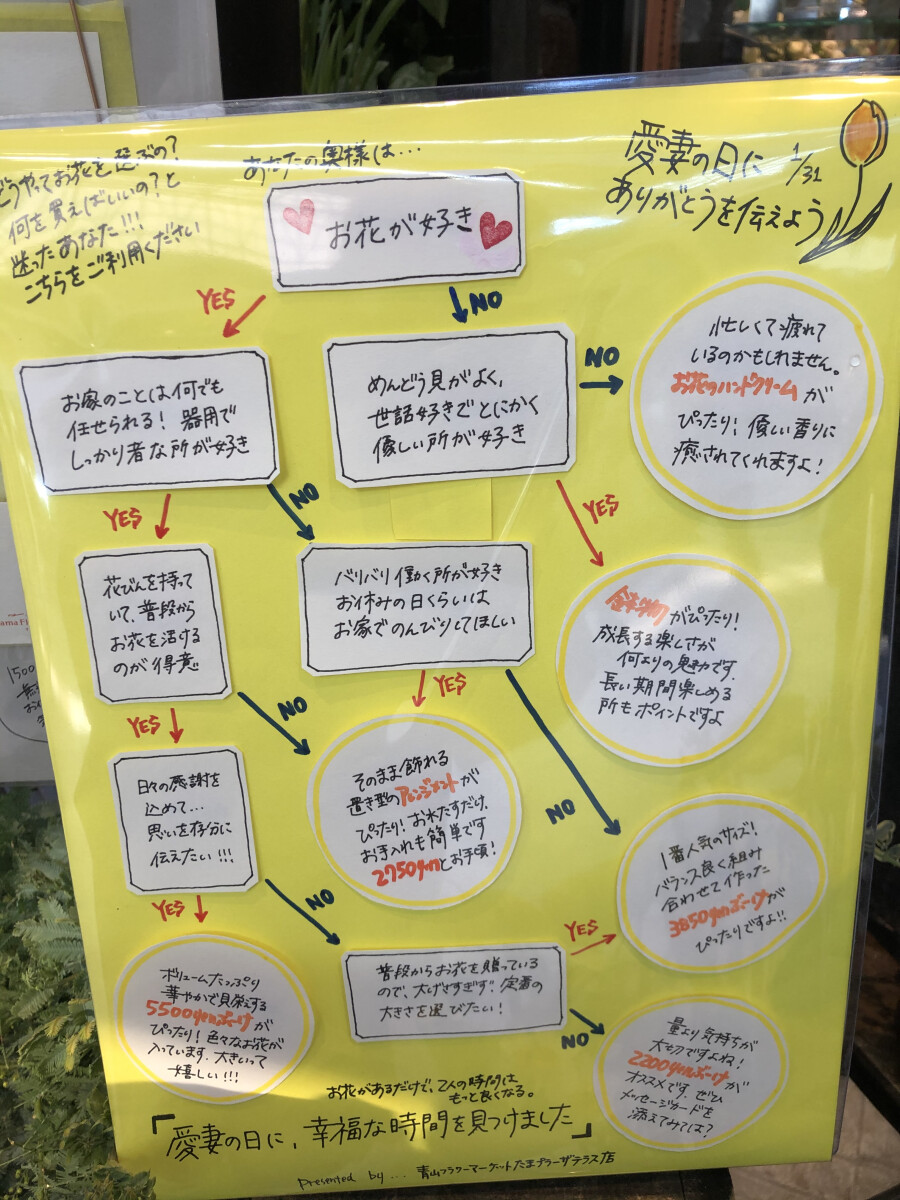 どうやってお花を選ぶの?
何を買えばいいの?と
迷ったあなた!!!
こちらをご利用ください
あなたの奥様は…
愛妻の日に 1/31
ありがとうを伝えよう
お花が好き
YES
NO
お家のことは何でも
任せられる! 器用で
しっかり者な所が好き
めんどう見がよく、
世話好きでとにかく
優しい所が好き
NO
忙しくて疲れて
いるのかもしれません。
お花のハンドクリームが
ぴったり! 優しい香りに
癒されてくれますよ!
YES
NO
YES
花びんを持って
いて、普段から
お花を活ける
のが得意
バリバリ働く所が好き
お休みの日くらいは
お家でのんびりしてほしい
鉢物がぴったり!
成長する楽しさが
何よりの魅力です。
長い期間楽しめる
所もポイントですよ
YES
NO
YES
NO
日々の感謝を
込めて…
思いを存分に
伝えたい!!!
そのまま飾れる
置き型のアレンジメントが
ぴったり! お水たすだけ、
お手入れも簡単です
2750yenとお手頃!
1番人気のサイズ!
バランス良く組み
合わせて作った
3850yenブーケが
ぴったりですよ!!
YES
NO
YES
ボリュームたっぷり
華やかで見栄えする
5500yenブーケが
ぴったり! 色々なお花が
入っています。大きいって
嬉しい!!!
普段からお花を贈っている
ので、大げさすぎず、定番の
大きさを選びたい!
NO
量より気持ちが
大切ですよね!
2200yenブーケが
オススメです。ぜひ
メッセージカードを
添えてみては?
お花があるだけで、2人の時間は
もっと良くなる。
「愛妻の日に、幸福な時間を見つけました」
Presented by... 青山フラワーマーケットたまプラーザテラス店
1500